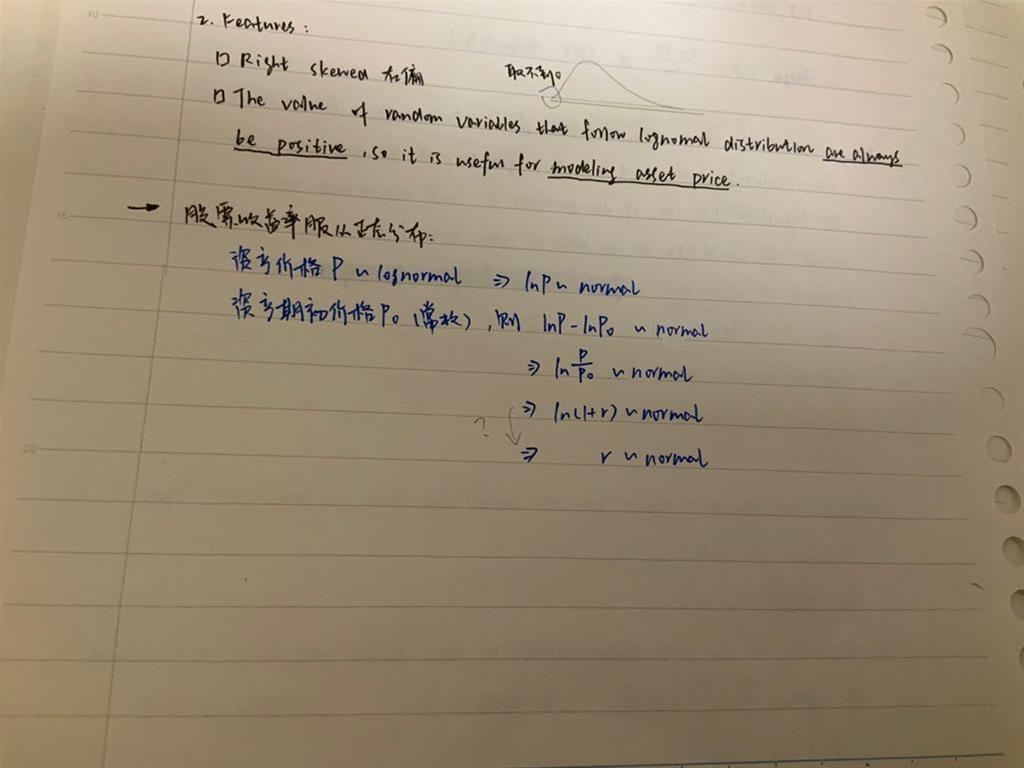 2. Features:
□ Right skewed 右偏
取不到0
□ The value of random variables that follow lognomal distribution are always
be positive, so it is useful for modeling asset price.
→ 股票收益率服从正态分布:
资产价格 P ~ lognormal ⇒ lnP ~ normal
资产期初价格 P₀ (常数), 则 lnP - lnP₀ ~ normal
⇒ ln P/P₀ ~ normal
⇒ ln(1+r) ~ normal
?
⇒ r ~ normal
10
15
20